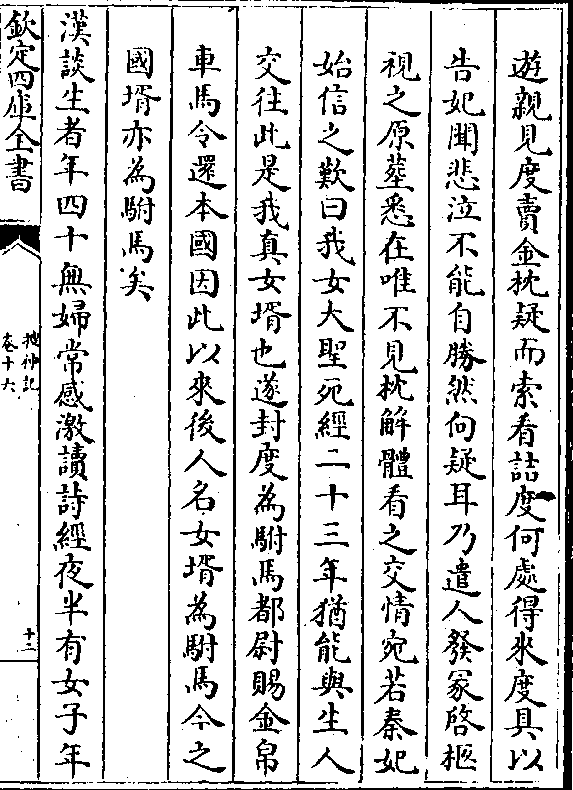 遊親見度賣金枕疑而索看詰度何處得來度具以
告妃聞悲泣不能自勝然向疑耳乃遣人發冢啓柩
視之原塟悉在唯不見枕解體看之交情宛若秦妃
始信之歎曰我女大聖死經二十三年猶能與生人
交往此是我真女壻也遂封度為駙馬都尉賜金帛
車馬令還本國因此以來後人名女壻為駙馬今之
國壻亦為駙馬矣
漢談生者年四十無婦常感激讀詩經夜半有女子年
欽定四庫全書
搜神記
卷十六
十二